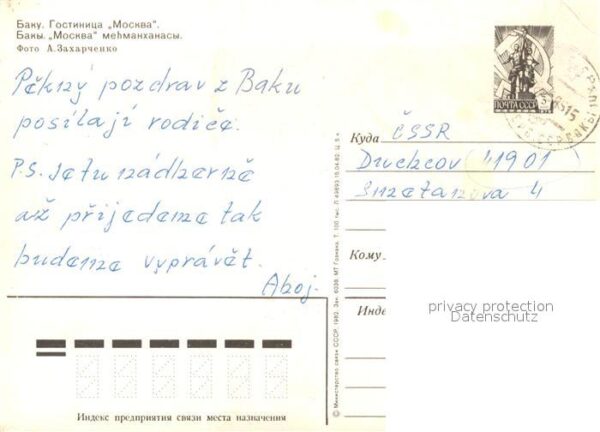 Баку. Гостиница „Москва".
Бакы. „Москва" меһманханасы.
Фото А. Захарченко
Pěkný pozdrav z Baku
posílají rodiče.
P.S. Je tu nádherně
až přijedeme tak
budeme vyprávět.
Ahoj.
ПОЧТА СССР
Куда ČSSR
Duchcov 41901
Smetanova 4
Кому
Инде
privacy protection
Datenschutz
Индекс предприятия связи места назначения
© Министерство связи СССР. 1980. Зак. 6039. МТ Гознака. Т. 100 тыс.